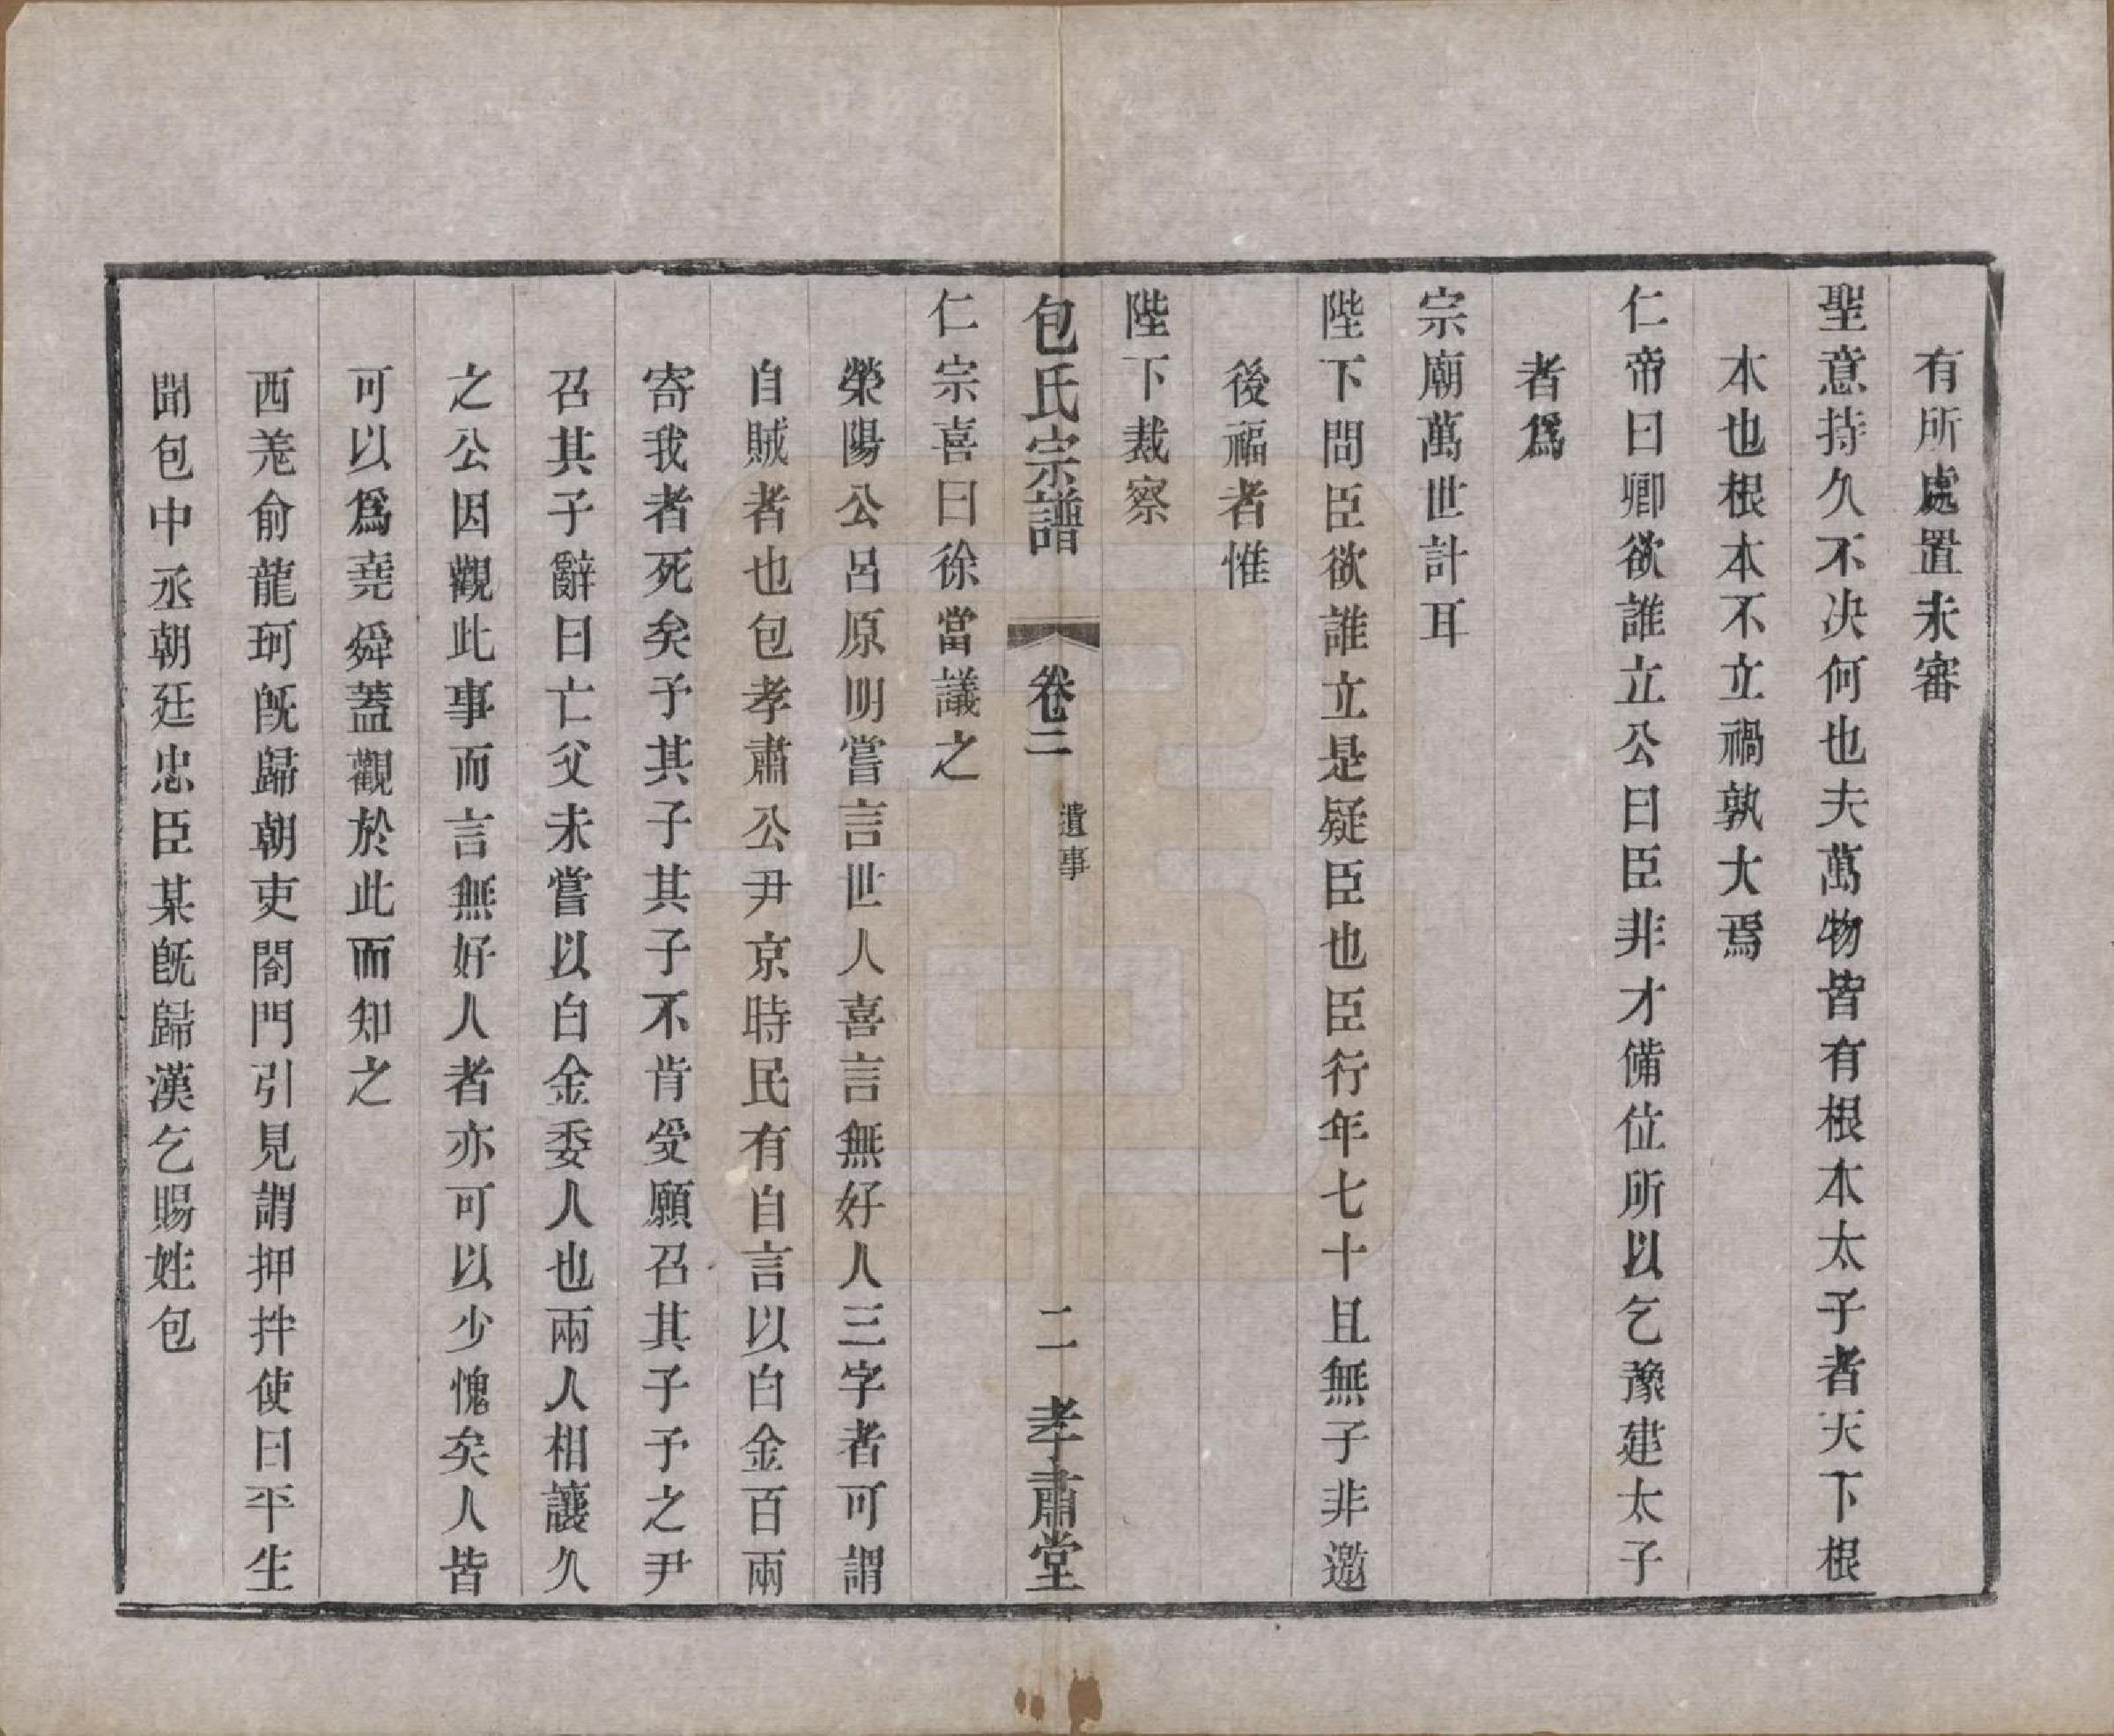 有所處置未審
聖意持久不決何也夫萬物皆有根本太子者天下根
本也根本不立禍孰大焉
仁帝曰卿欲誰立公曰臣非才備位所以乞豫建太子
者爲
宗廟萬世計耳
陛下問臣欲誰立是疑臣也臣行年七十且無子非邀
後福者惟
陛下裁察
包氏宗譜
卷二
遺事
二
孝肅堂
仁宗喜曰徐當議之
榮陽公呂原明嘗言世人喜言無好人三字者可謂
自賊者也包孝肅公尹京時民有自言以白金百兩
寄我者死矣予其子其子不肯受願召其子予之尹
召其子辭曰亡父未嘗以白金委人也兩人相讓久
之公因觀此事而言無好人者亦可以少愧矣人皆
可以爲堯舜蓋觀於此而知之
西羌俞龍珂旣歸朝吏閤門引見謂押拌使曰平生
聞包中丞朝廷忠臣某旣歸漢乞賜姓包